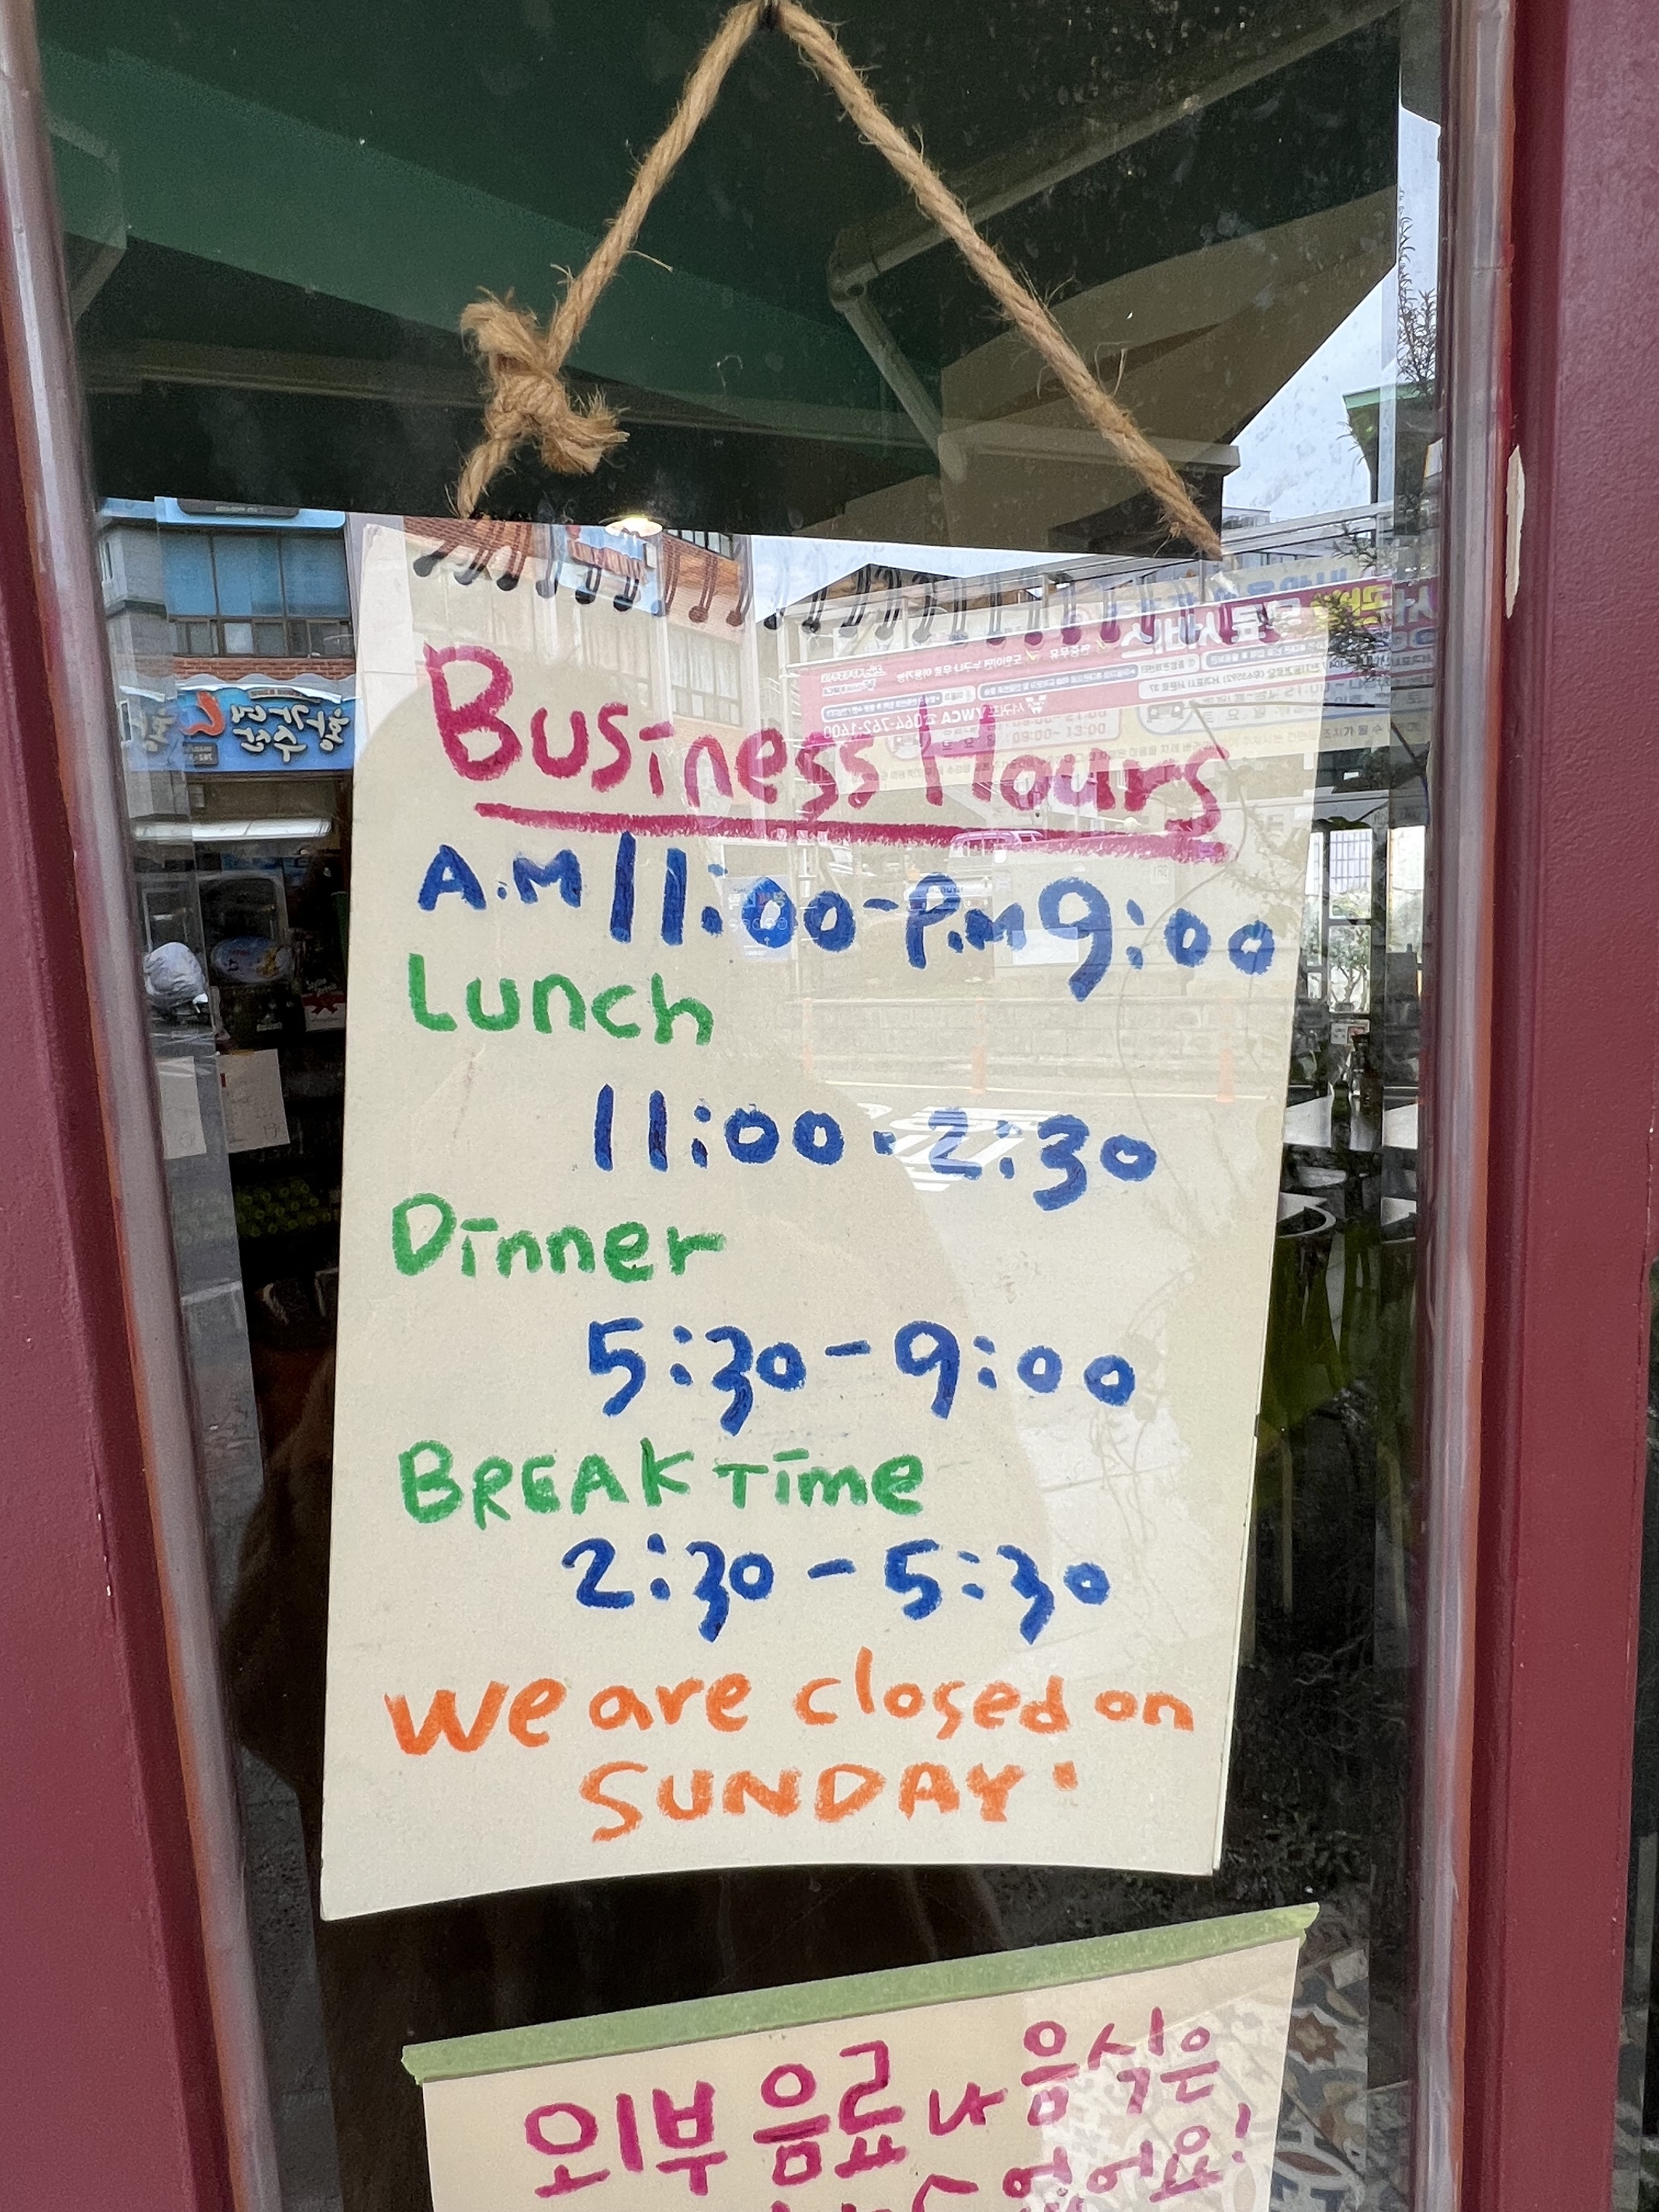 Business Hours
A.M 11:00-P.M 9:00
Lunch
11:00-2:30
Dinner
5:30-9:00
BREAK Time
2:30-5:30
We are closed on
SUNDAY.
외부 음료나 음식은
없어요!
YWCA 064-762-1400